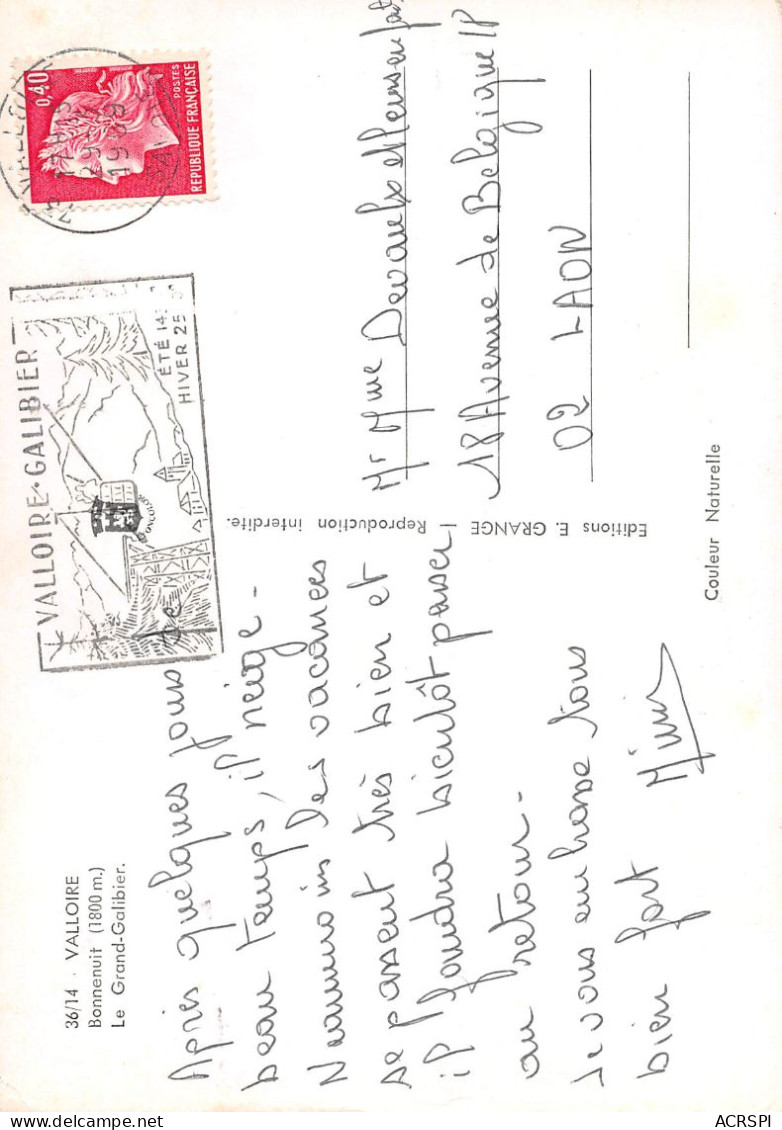 36/14 . VALLOIRE
Bonnenuit (1800 m.)
Le Grand-Galibier.
Après quelques jours de
beau temps, il neige -
Neanmoins les vacances
se passent très bien et
il faudra bientôt penser
au retour -
Je vous embrasse tous
bien fort
Editions E. GRANGE | Reproduction interdite.
Couleur Naturelle
VALLOIRE-GALIBIER
ÉTÉ
HIVER
VALLOIRE
1969
0,40
REPUBLIQUE FRANÇAISE
POSTES
Mr Mme
18 Avenue de Belgique
02 LAON
ACRSPI